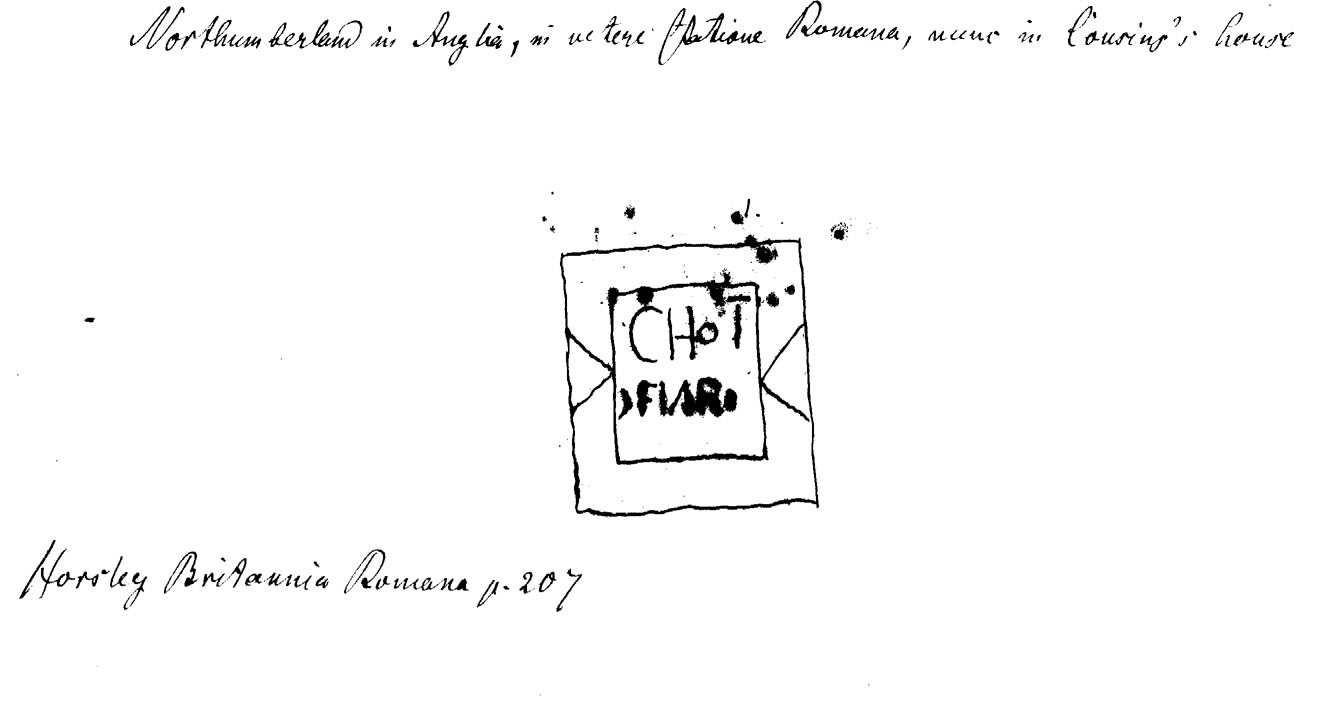 Northumberland in Anglia, in vetere statione Romana, nunc in Cousins's house
CHoT
Horsley Britannia Romana p. 207